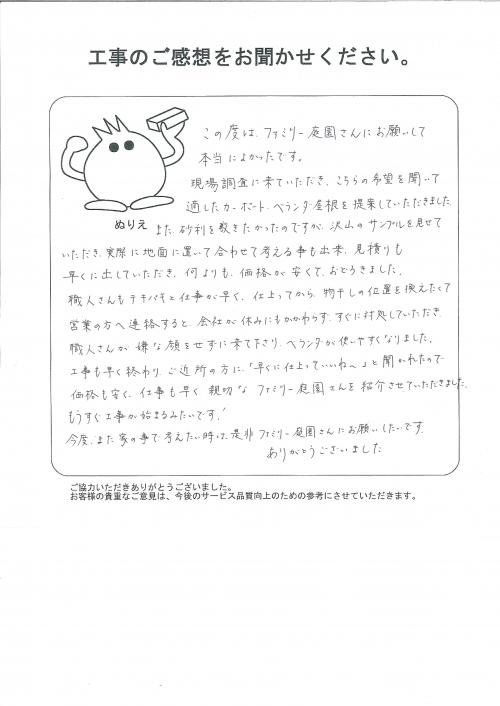 工事のご感想をお聞かせください。
この度は、ファミリー庭園さんにお願いして
本当によかったです。
現場調査に来ていただき、こちらの希望を聞いて
適したカーポート、ベランダ屋根を提案していただきました。
ぬりえ
また、砂利を敷きたかったのですが、沢山のサンプルを見せて
いただき、実際に地面に置いて合わせて考える事も出来、見積りも
早くに出していただき、何よりも、価格が安くて、おどろきました。
職人さんもテキパキと仕事が早く、仕上ってから、物干しの位置を換えたくて
営業の方へ連絡すると、会社が休みにもかかわらず、すぐに対処していただき、
職人さんが嫌な顔をせずに来て下さり、ベランダが使いやすくなりました。
工事も早く終わり、ご近所の方に、「早くに仕上っていいね〜」と聞かれたので
価格も安く、仕事も早く親切なファミリー庭園さんを紹介させていただきました。
もうすぐ工事が始まるみたいです！
今度、また家の事で考えたい時は、是非ファミリー庭園さんにお願いしたいです。
ありがとうございました
ご協力いただきありがとうございました。
お客様の貴重なご意見は、今後のサービス品質向上のための参考にさせていただきます。